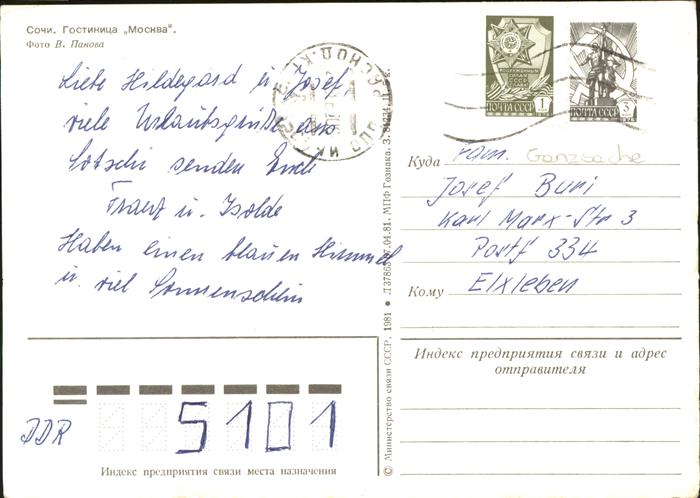 Сочи. Гостиница „Москва“.
Фото В. Панова
Liebe Hildegard u. Josef,
viele Urlaubsgrüße aus
Sotschi senden Euch
Franz u. Isolde
Haben einen blauen Himmel
u. viel Sonnenschein
ВООРУЖЕННЫЕ СИЛЫ СССР
ПОЧТА СССР 1
ПОЧТА СССР 3
Куда Fam. Ganzsache
Josef Buri
Karl Marx-Str 3
Postf 334
Кому Elxleben
Индекс предприятия связи и адрес
отправителя
DDR 5101
Индекс предприятия связи места назначения
© Министерство связи СССР, 1981 • Л 37865 7.04.81. МПФ Гознака. З. 81234. Ц. 4 к.